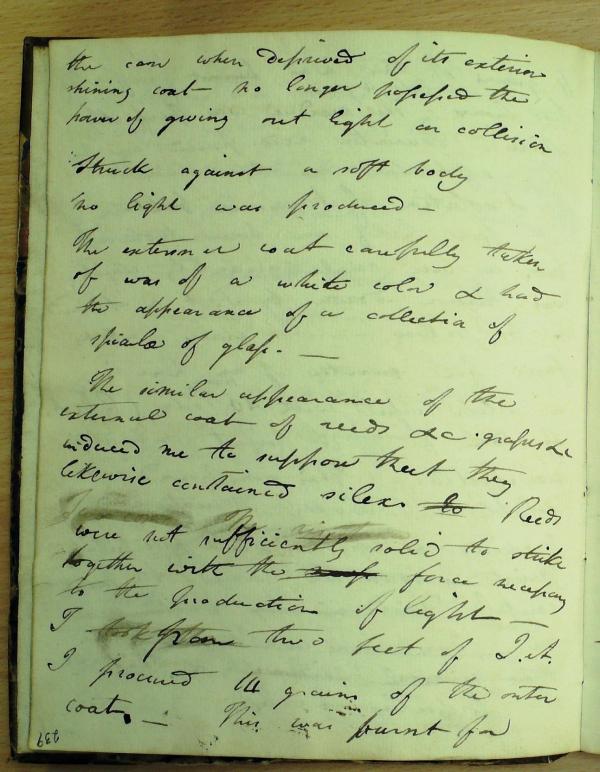 the cane when deprived of its exterior
shining coat no longer possessed the
power of giving out light on collision
Struck against a soft body
no light was produced —
The external coat carefully taken
of was of a white color & had
the appearance of a collection of
spiculæ of glass. —
The similar appearance of the
external coat of reeds &c grasses &c
induced me to suppose that they
likewise contained silex to Reeds
were not sufficiently solid to strike
together with the force necessary
to the production of light —
I from two feet of
I procured 14 grains of the outer
coat. — This was burnt for
239